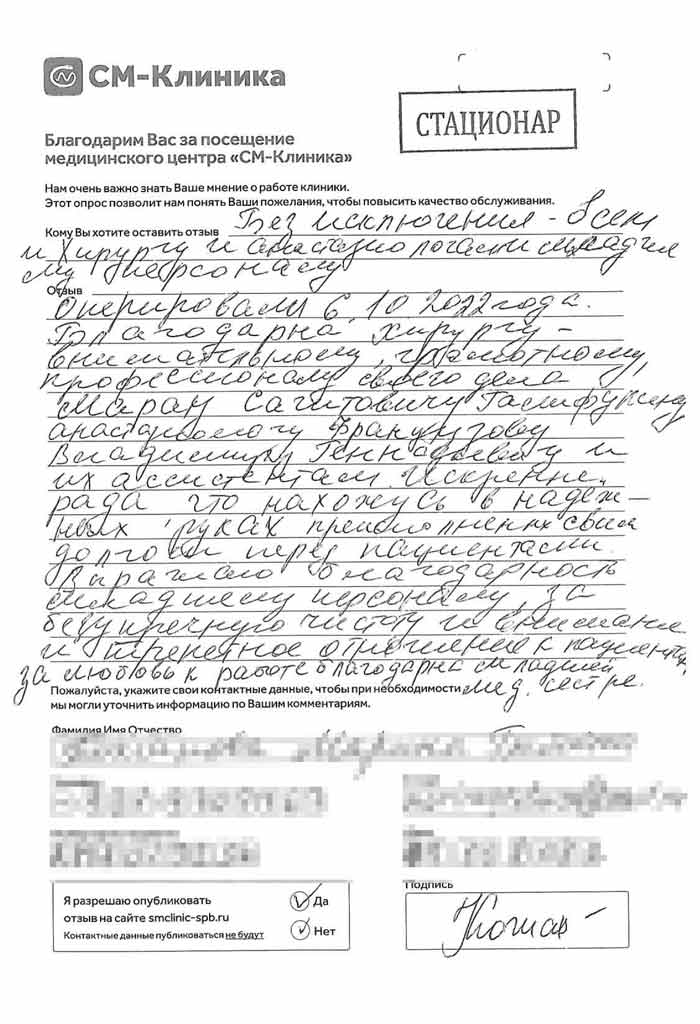 СМ-Клиника
СТАЦИОНАР
Благодарим Вас за посещение
медицинского центра «СМ-Клиника»
Нам очень важно знать Ваше мнение о работе клиники.
Этот опрос позволит нам понять Ваши пожелания, чтобы повысить качество обслуживания.
Кому Вы хотите оставить отзыв Без исключения - всем
и хирургу и анастезиологам и младше
му персоналу
Отзыв
Оперировали 6.10.2022 года.
Благодарна хирургу -
внимательному, грамотному,
профессионалу своего дела
Марату Сагитовичу
анастезиологу Французову
Владимиру Геннадьевичу и
их ассистентам. Искренне
рада что нахожусь в надеж-
ных руках преисполненых своим
долгом перед пациентами.
Выражаю благодарность
младшему персоналу, за
безупречную чистоту и внимание
и трепетное отношение к пациенту,
за любовь к работе благодарна младшей
мед. сестре.
Пожалуйста, укажите свои контактные данные, чтобы при необходимости
мы могли уточнить информацию по Вашим комментариям.
Фамилия Имя Отчество
Подпись
Я разрешаю опубликовать
отзыв на сайте smclinic-spb.ru
Контактные данные публиковаться не будут
Да
Нет